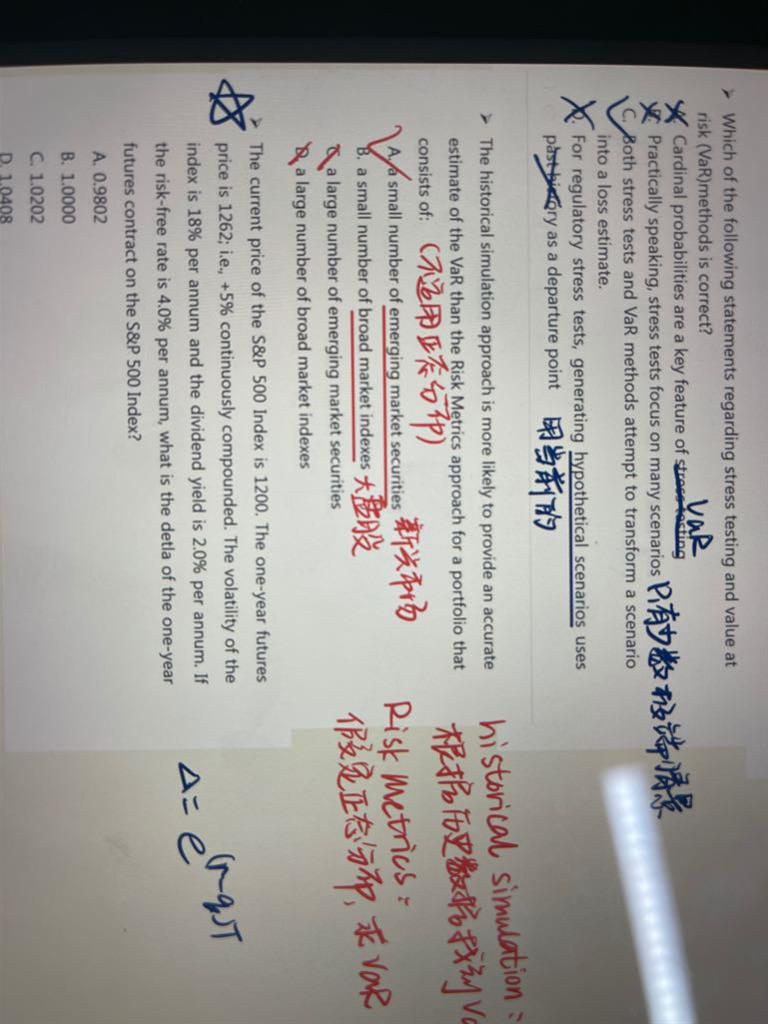 ➤ Which of the following statements regarding stress testing and value at
risk (VaR)methods is correct?
A. Cardinal probabilities are a key feature of stress testing
VaR
B. Practically speaking, stress tests focus on many scenarios 只有少数极端情景
C. Both stress tests and VaR methods attempt to transform a scenario
into a loss estimate.
D. For regulatory stress tests, generating hypothetical scenarios uses
past history as a departure point 用当前的
➤ The historical simulation approach is more likely to provide an accurate
estimate of the VaR than the Risk Metrics approach for a portfolio that
consists of: (不适用正态分布)
A. a small number of emerging market securities 新兴市场
B. a small number of broad market indexes 大盘股
C. a large number of emerging market securities
D. a large number of broad market indexes
historical simulation:
根据历史数据找到Va
Risk Metrics:
假定正态分布, 求VaR
➤ The current price of the S&P 500 Index is 1200. The one-year futures
price is 1262; i.e., +5% continuously compounded. The volatility of the
index is 18% per annum and the dividend yield is 2.0% per annum. If
the risk-free rate is 4.0% per annum, what is the detla of the one-year
futures contract on the S&P 500 Index?
Δ= e^(r-q)T
A. 0.9802
B. 1.0000
C. 1.0202
D. 1.0408